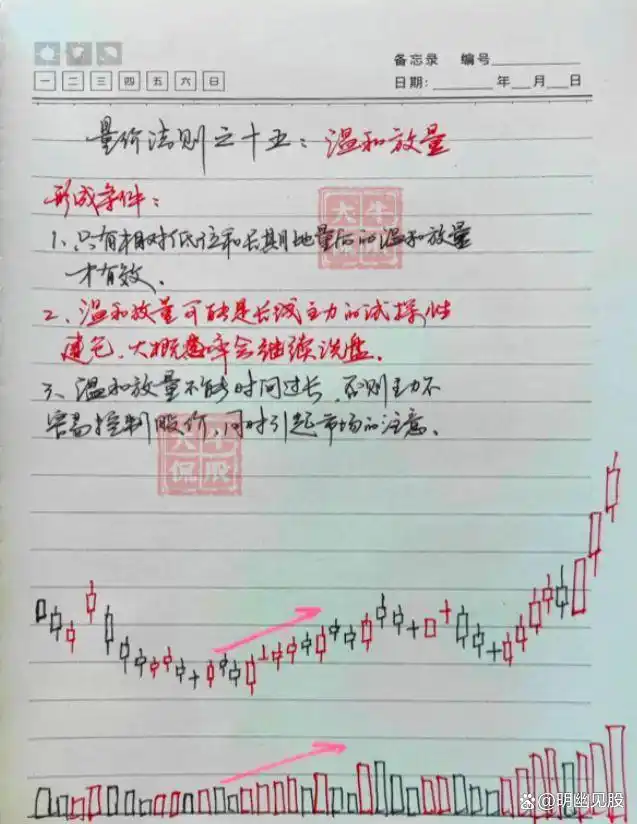 备忘录 编号
一 二 三 四 五 六 日
日期: 年 月 日
量价法则之十五：温和放量
形成条件：
大牛
侃股
1、只有相对低位和长期地量后的温和放量
才有效、
2、温和放量可能是长线主力的试探性
建仓、大概率会继续洗盘、
3、温和放量不能时间过长、否则主力不
容易控制股价,同时引起市场的注意、
大牛
侃股
@明幽见股